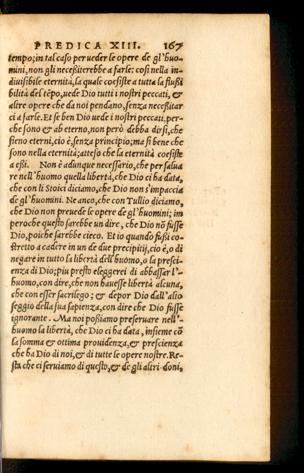 PREDICA XIII. 167
tempo; in tal caso per ueder le opere de gl'huo-
mini, non gli neceßiterebbe a farle: cosi nella in-
diuisibile eternità, la quale coesiste a tutta la flußi
bilità del tẽpo, uede Dio tutti i nostri peccati, &
altre opere che da noi pendano, senza neceßitar
ci a farle. Et se ben Dio uede i nostri peccati, per-
che sono & ab eterno, non però debba dirsi, che
sieno eterni, cio è, senza principio; ma si bene che
sono nella eternità; atteso che la eternità coesiste
a eßi. Non è adunque necessario, che per salua
re nell'huomo quella libertà, che Dio ci ha data,
che con li Stoici diciamo, che Dio non s'impaccia
de gl'huomini. Ne anco, che con Tullio diciamo,
che Dio non preuede le opere de gl'huomini; im
peroche questo sarebbe un dire, che Dio nõ fusse
Dio, poiche sarebbe cieco. Et io quando fußi co-
stretto a cadere in un de due precipitij, cio è, o di
negare in tutto la libertà dell'huomo, o la presci-
enza di Dio; piu presto eleggerei di abbassar l'-
huomo, con dire, che non hauesse libertà alcuna,
che con esser sacrilego; & depor Dio dall'alto
seggio della sua sapienza, con dire che Dio fusse
ignorante. Ma noi poßiamo preseruare nell'-
huomo la libertà, che Dio ci ha data, insieme cõ
la somma & ottima prouidenza, & prescienza
che ha Dio di noi, & di tutte le opere nostre. Re-
sta che ci seruiamo di questo, & de gli altri doni,